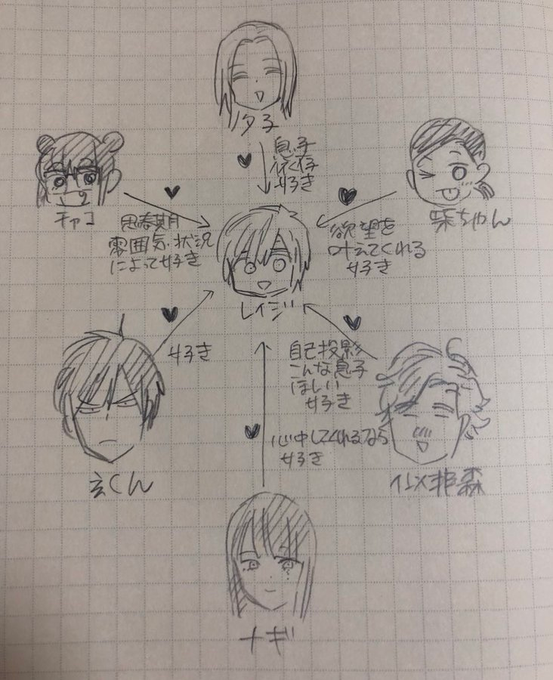 夕子
息子
依存
好き
チャコ
思春期
雰囲気・状況
によって好き
柴ちゃん
欲望を
叶えてくれる
好き
レイジ
好き
玄くん
自己投影
こんな息子
ほしい
好き
似非森
心中してくれるなら
好き
ナギ